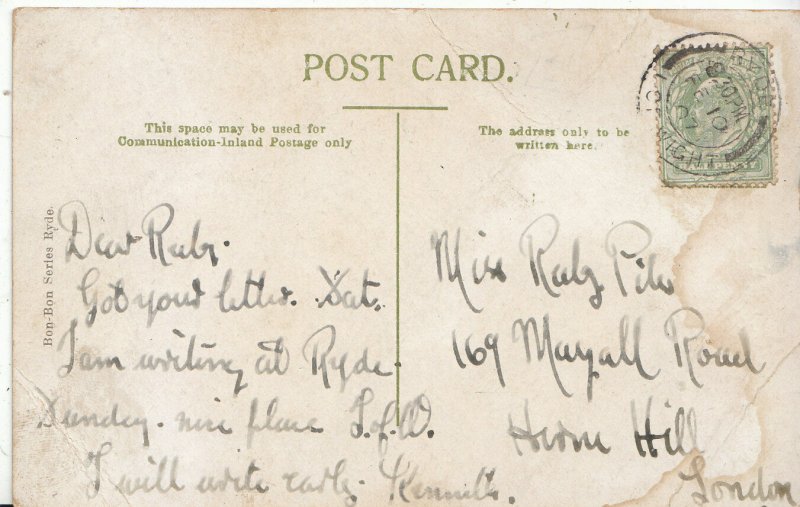 POST CARD.
This space may be used for
Communication-Inland Postage only
The address only to be
written here.
Bon-Bon Series Ryde.
RYDE
PM
10
07
WIGHT
HALFPENNY
Dear Ruby.
Got your letter. Sat.
I am writing at Ryde.
Sunday. nice place I.of.W.
I will write early. Kenneth.
Miss Ruby
169 Mayall Road
Herne Hill
London